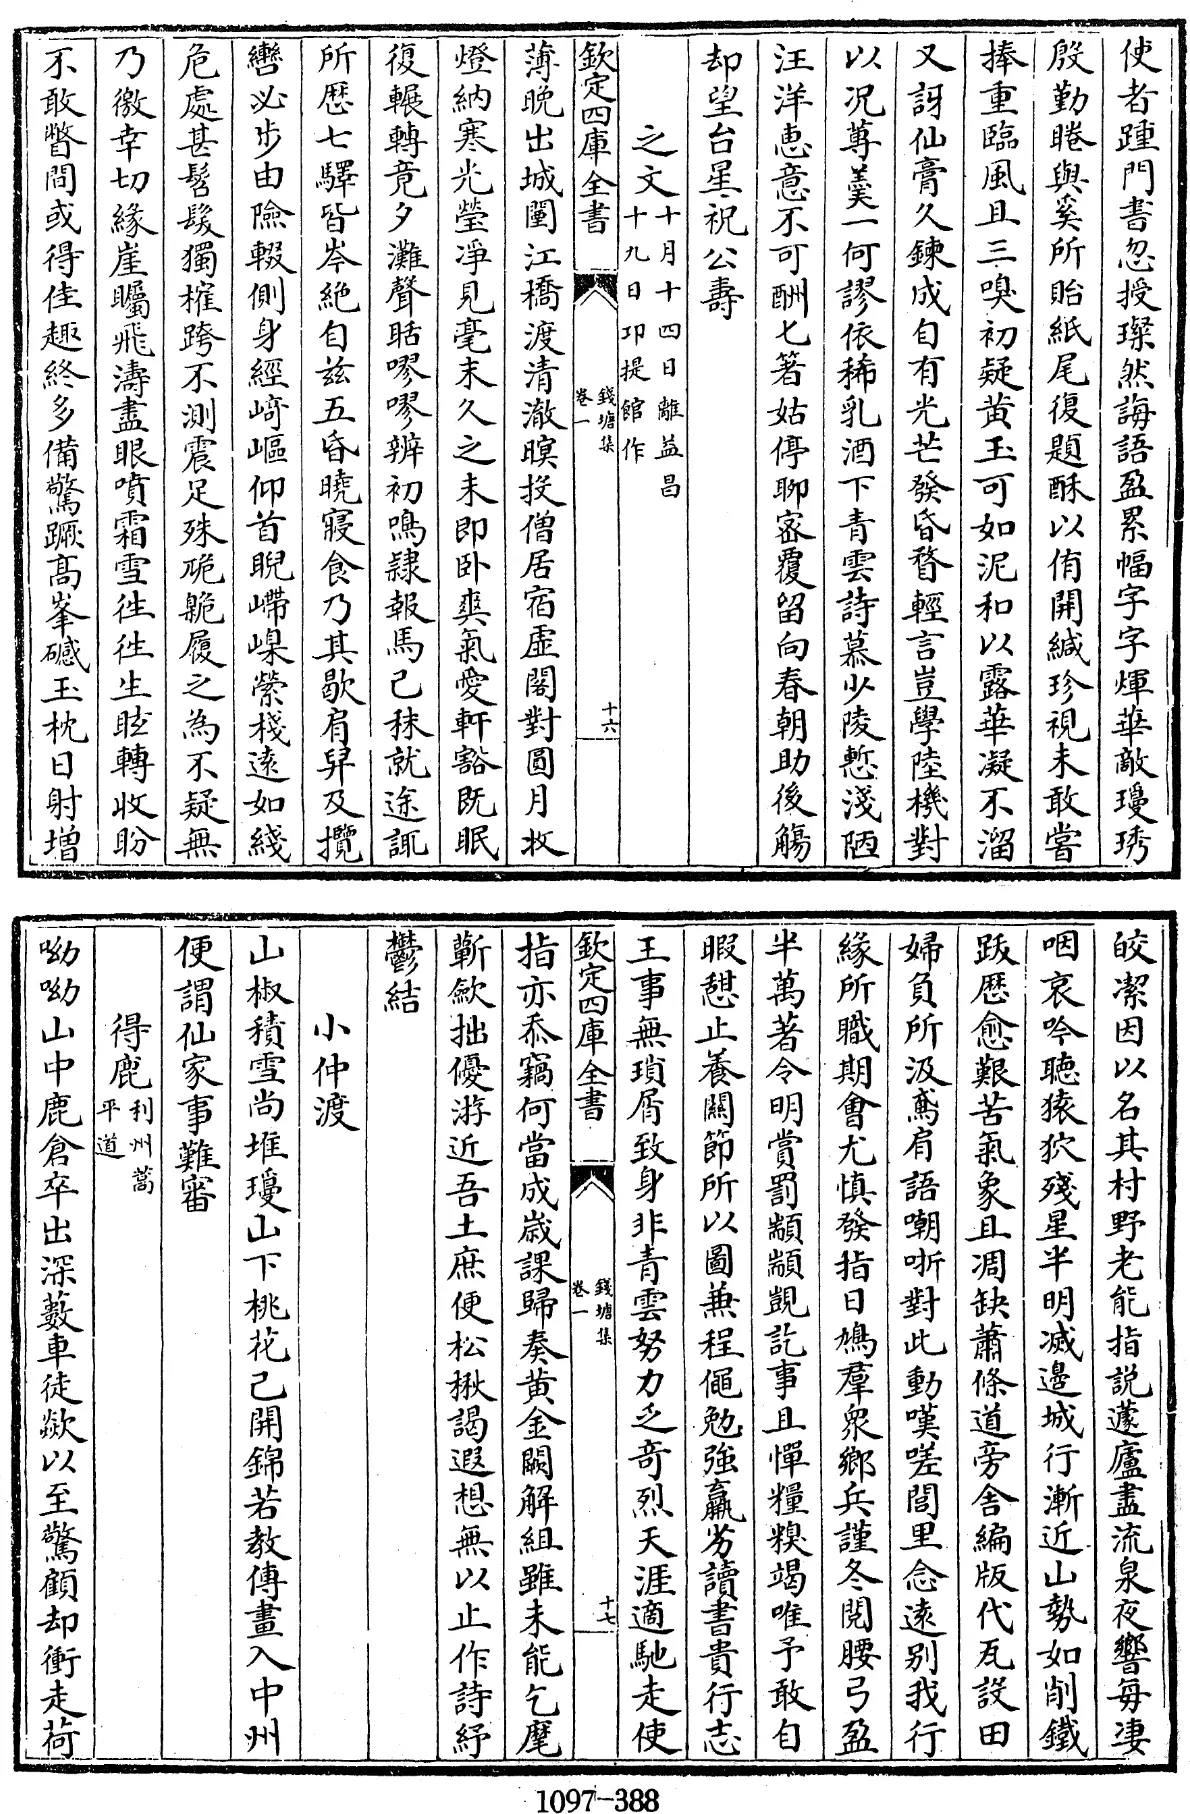 使者踵門書忽授璨然誨語盈累幅字字煇華敵瓊琇
殷勤睠與奚所貽紙尾復題酥以侑開緘珍視未敢嘗
捧重臨風且三嗅初疑黄玉可如泥和以露華凝不溜
又訝仙膏久鍊成自有光芒發昏瞀輕言豈學陸機對
以况蓴羹一何謬依稀乳酒下青雲詩慕少陵慙淺陋
汪洋惠意不可酬匕箸姑停聊宻覆留向春朝助後觴
却望台星祝公壽
之文十月十四日離益昌
十九日卭提館作
欽定四庫全書
錢塘集
卷一
十六
薄晚出城闉江橋渡清澈暝投僧居宿虛閣對圓月收
燈納寒光瑩凈見毫末久之未即卧爽氣愛軒豁既眠
復輾轉竟夕灘聲聒嘐嘐辨初鳴隷報馬已秣就途諏
所歴七驛皆岑絶自兹五昏曉寢食乃其歇肩舁及攬
轡必步由險輟側身經﨑嶇仰首睨嵽嵲縈棧逺如綫
危處甚髫髮獨榷跨不測震足殊硊𡾋履之為不疑無
乃徼幸切緣崖矚飛濤盡眼噴霜雪徃徃生眩轉收盼
不敢瞥間或得佳趣終多備驚蹶髙峯礙玉枕日射增
皎潔因以名其村野老能指説蘧廬盡流泉夜響每凄
咽哀吟聴猿狖殘星半明滅邊城行漸近山勢如削鐵
跋歴愈艱苦氣象且凋缺蕭條道旁舍編版代瓦設田
婦負所汲鳶肩語嘲哳對此動嘆嗟閭里念逺别我行
緣所職期會尤慎發指日鳩羣衆鄉兵謹冬閲腰弓盈
半萬著令明賞罰顒顒覬訖事且憚糧糗竭唯予敢自
暇憇止養闗節所以圖兼程僶勉強羸劣讀書貴行志
王事無瑣屑致身非青雲努力乏竒烈天涯適馳走使
欽定四庫全書
錢塘集
卷一
十七
指亦忝竊何當成嵗課歸奏黄金闕解組雖未能乞麾
蘄歛拙優游近吾土庶便松楸謁遐想無以止作詩紓
鬱結
小仲渡
山椒積雪尚堆瓊山下桃花已開錦若教傳畫入中州
便謂仙家事難審
得鹿利州蒿
平道
呦呦山中鹿倉卒出深藪車徒歘以至驚顧却衝走荷
1097-388